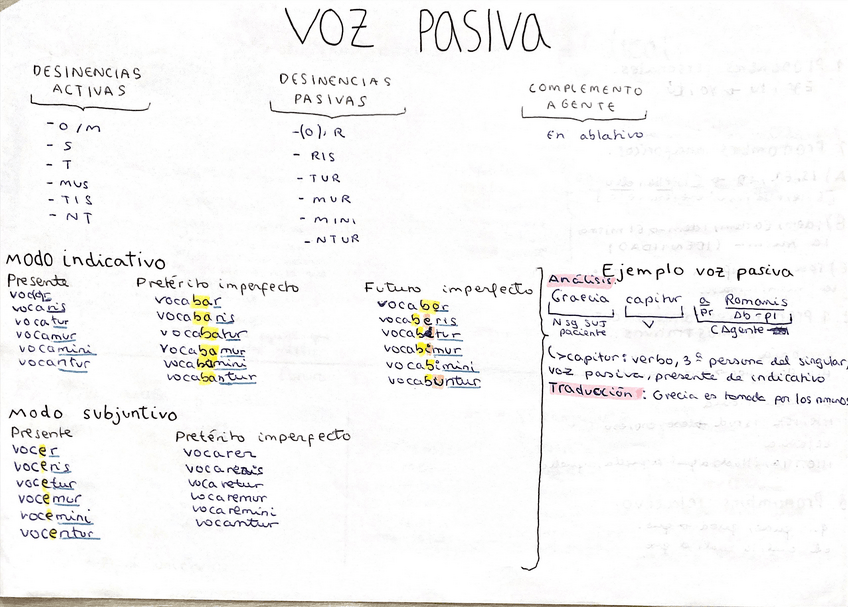 VOZ PASIVA
DESINENCIAS
ACTIVAS
- O/M
- S
- T
- MUS
- TIS
- NT
DESINENCIAS
PASIVAS
-(O), R
- RIS
- TUR
- MUR
- MINI
- NTUR
COMPLEMENTO
AGENTE
En ablativo
Modo indicativo
Presente
vocaris
vocatur
vocamur
vocamini
vocantur
Pretérito imperfecto
vocabar
vocabaris
vocabatur
vocabamur
vocabamini
vocabantur
Futuro imperfecto
vocabor
vocaberis
vocabitur
vocabimur
vocabimini
vocabuntur
Modo subjuntivo
Presente
vocer
voceris
vocetur
vocemur
vocemini
vocentur
Pretérito imperfecto
vocarer
vocareris
vocaretur
vocaremur
vocaremini
vocantur
Ejemplo voz pasiva
Análisis:
Graecia capitur a Romanis
N sg SUJ paciente V Pr Ab-pl
C Agente
↳capitur: verbo, 3ª persona del singular,
voz pasiva, presente de indicativo
Traducción: Grecia es tomada por los romanos